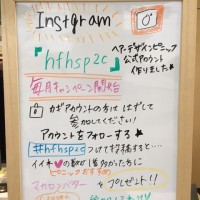 Instgram
ヘアーデザインピニック
公式アカウント
作りました★
「hfhsp2c」
毎月キャンペーン開始
カギアカウントの方は はずして
参加してください!
アカウントをフォローする★
#hfhsp2c つけて投稿すると…
イイネ の数が1番多かった方に
ピニックおすすめ
マカロンバター を プレゼント!!